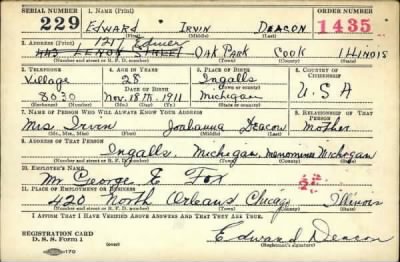 SERIAL NUMBER 1. NAME (Print) ORDER NUMBER
229 EDWARD IRVIN DEACON 1435
(First) (Middle) (Last)
1211 Elmer
2. ADDRESS (Print)
LENOX STREET OAK PARK COOK ILLINOIS
(Number and street or R. F. D. number) (Town) (County) (State)
3. TELEPHONE 4. AGE IN YEARS 5. PLACE OF BIRTH 6. COUNTRY OF CITIZENSHIP
Village 28 Ingalls
DATE OF BIRTH (Town or county) U.S.A
8030 Nov. 18TH, 1911 Michigan
(Exchange) (Number) (Mo.) (Day) (Yr.) (State or country)
7. NAME OF PERSON WHO WILL ALWAYS KNOW YOUR ADDRESS 8. RELATIONSHIP OF THAT PERSON
Mrs. Irvin Deacon Mother
(Mr., Mrs., Miss) (First) (Middle) (Last)
9. ADDRESS OF THAT PERSON
Ingalls, Michigan, Menominee Michigan
(Number and street or R. F. D. number) (Town) (County) (State)
10. EMPLOYER'S NAME
Mr George E Fox
11. PLACE OF EMPLOYMENT OR BUSINESS
420 North Orleans Chicago Illinois
(Number and street or R. F. D. number) (Town) (County) (State)
I AFFIRM THAT I HAVE VERIFIED ABOVE ANSWERS AND THAT THEY ARE TRUE.
REGISTRATION CARD
D. S. S. Form 1 Edward Deacon
(Registrant's signature)